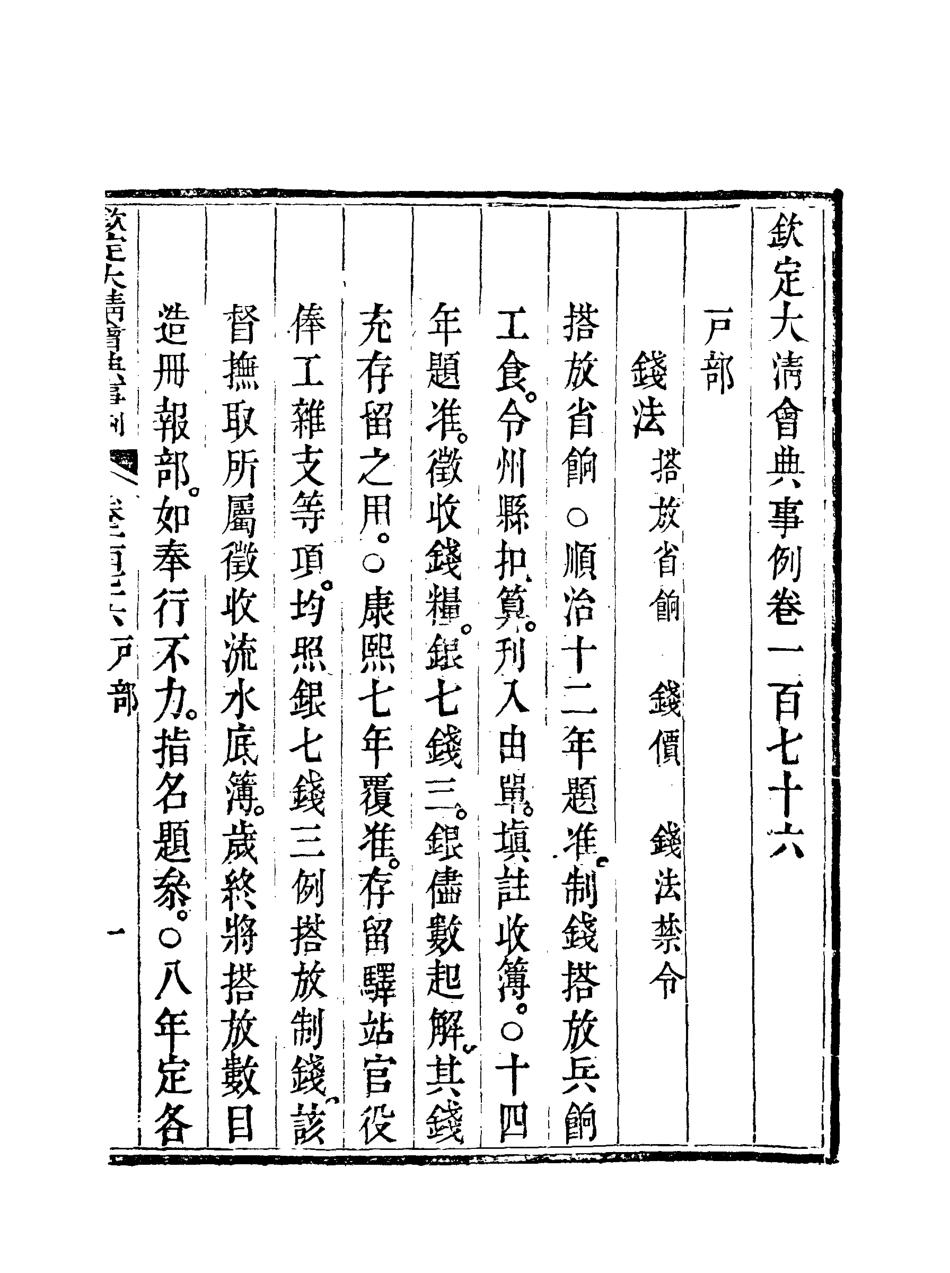 欽定大淸會典事例卷一百七十六
戸部
錢法 搭放省餉 錢價 錢法禁令
搭放省餉○順治十二年題准。制錢搭放兵餉
工食。令州縣扣算。刊入由單。塡註收簿。○十四
年題准。徵收錢糧。銀七錢三。銀儘數起解。其錢
充存留之用。○康熙七年覆准。存留驛站官役
俸工雜支等項。均照銀七錢三例搭放制錢。該
督撫取所屬徵收流水底簿。歲終將搭放數目
造冊報部。如奉行不力。指名題叅。○八年定各
欽定大淸會典事例 卷一百七十六 戸部 一